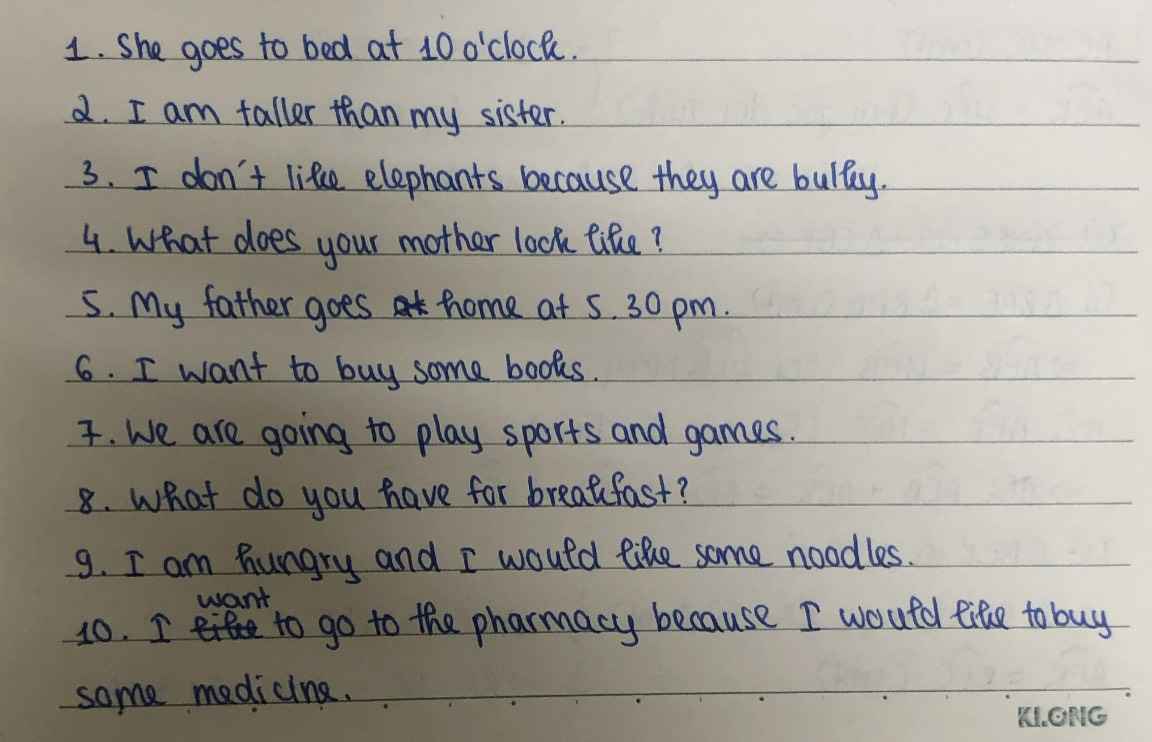 1. She goes to bed at 10 o'clock.
2. I am taller than my sister.
3. I don't like elephants because they are bulky.
4. What does your mother look like?
5. My father goes at home at 5.30 pm.
6. I want to buy some books.
7. We are going to play sports and games.
8. What do you have for breakfast?
9. I am hungry and I would like some noodles.
want
10. I like to go to the pharmacy because I would like to buy
some medicine.
KLONG